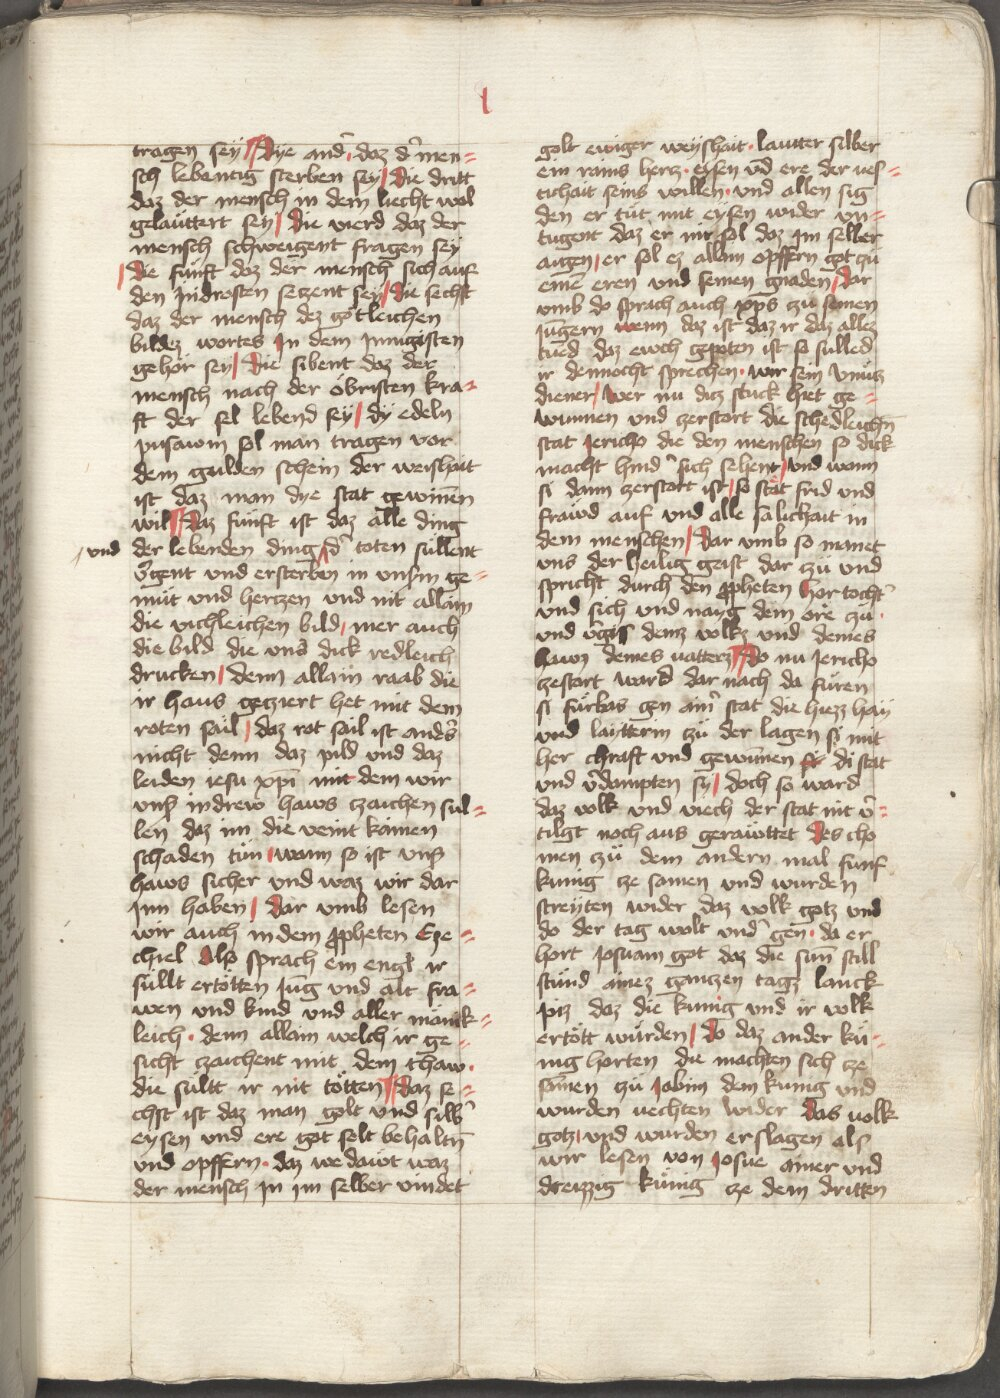 l
tragen sey Dye and̉ · daz d̉ men=
sch lebentig sterben sey Die dritt
daz der mensch in dem liecht wol
gelauttert sey Die vierd daz der
mensch schweigent fragen sey
Die fünft daz der mensch sich auf
den Indrosten seczent sey Die sechst
daz der mensch dez gotleichen
bildez wortes In dem Innigisten
gehör sey Die sibent daz der
mensch nach der obristen kra=
ft der sel lebend sey Dy edeln
pusawm sol man tragen vor
dem gulden schein der weishait
ist daz man dye stat gewinen
wil Daz fünft ist daz alle ding
/ und der lebenden ding d̉ toten süllent
v̉gent und ersterben in vnsm ge=
müt und hertzen und nit allain
die vichleichen bild mer auch
die bild die uns dick redleich
drucken Denn allain raab die
ir haus geziert het mit dem
roten sail daz rot sail ist anders
nicht denn daz pild und daz
leiden iesu xpi mit dem wir
vnß indrew haws czaichen sul=
len daz im die veint kainen
schaden tün wann so ist vnß
haws sicher und waz wir dar
Inn haben Dar vmb lesen
wir auch in dem ppheten Eze
chiel Also sprach ein engel ir
süllt ertötten Jung und alt fra=
wen und kind und aller mänik=
leich · denn allain welch ir ge=
sicht czaichent mit dem thaw ·
die sültt ir nit tötten Daz se=
chst ist daz man golt und silb̉
eysen und ere got solt behaltn
und opffern · daz wedawt waz
der mensch In im selber vindet
golt ewiger weyshait · lautter silber
ein rains hercz · eysen vnd ere der ves=
tichait seins willen · und allen sig
den er tüt mit eysen wider vn=
tugent daz er nit sol daz Im selber
aigen er sol ez allain opffern got zü
einen eren und seinen gnaden Dar
vmb do sprach auch xps zu seinen
Jungern wenn daz ist daz ir daz allez
tued daz ewch gepoten ist so sulled
ir dennocht sprechen · wir sein vnücz
diener Wer nu dicz stuck hiet ge=
wunnen und zerstort die schedleichn
stat Jericho die den menschen so dick
macht hind̉ sich sehent und wann
si dann zerstort ist so stat frid und
frawd auf und alle salichait in
dem menschen Dar vmb so manet
vns der heilig geist dar zü und
spricht durch den ppheten hor tocht̉
und sich und naig dein ore zü ·
und v̉gis deinz volkz und deines
hawz deines vatterz Do nu Jericho
zestort ward dar nach da füren
si fürbas gen ainer stat die hiezz hay
und laytterin zü der lagen si mit
her chraft und gewunnen di stat
und v̉dampten sy doch so ward
daz volk und viech der stat nit v̉=
tilgt noch aus gerawttet Des cho
men zü dem andern mal funf
kunig ze samen und wurden
streyten wider daz volk gotz und
do der tag wolt vnd̉ gen · da er
hort Josuam got daz die sunn still
stund ainez ganczen tagz lanck
piz daz die kunig und ir volk
ertött würden Do daz ander kü=
nig horten die machten sich ze
samen zü Jabim dem kunig und
wurden vechten wider Das volk
gotz und wurden erslagen als
wir lesen von Josue ainer und
dreizzig künig ze dem dritten